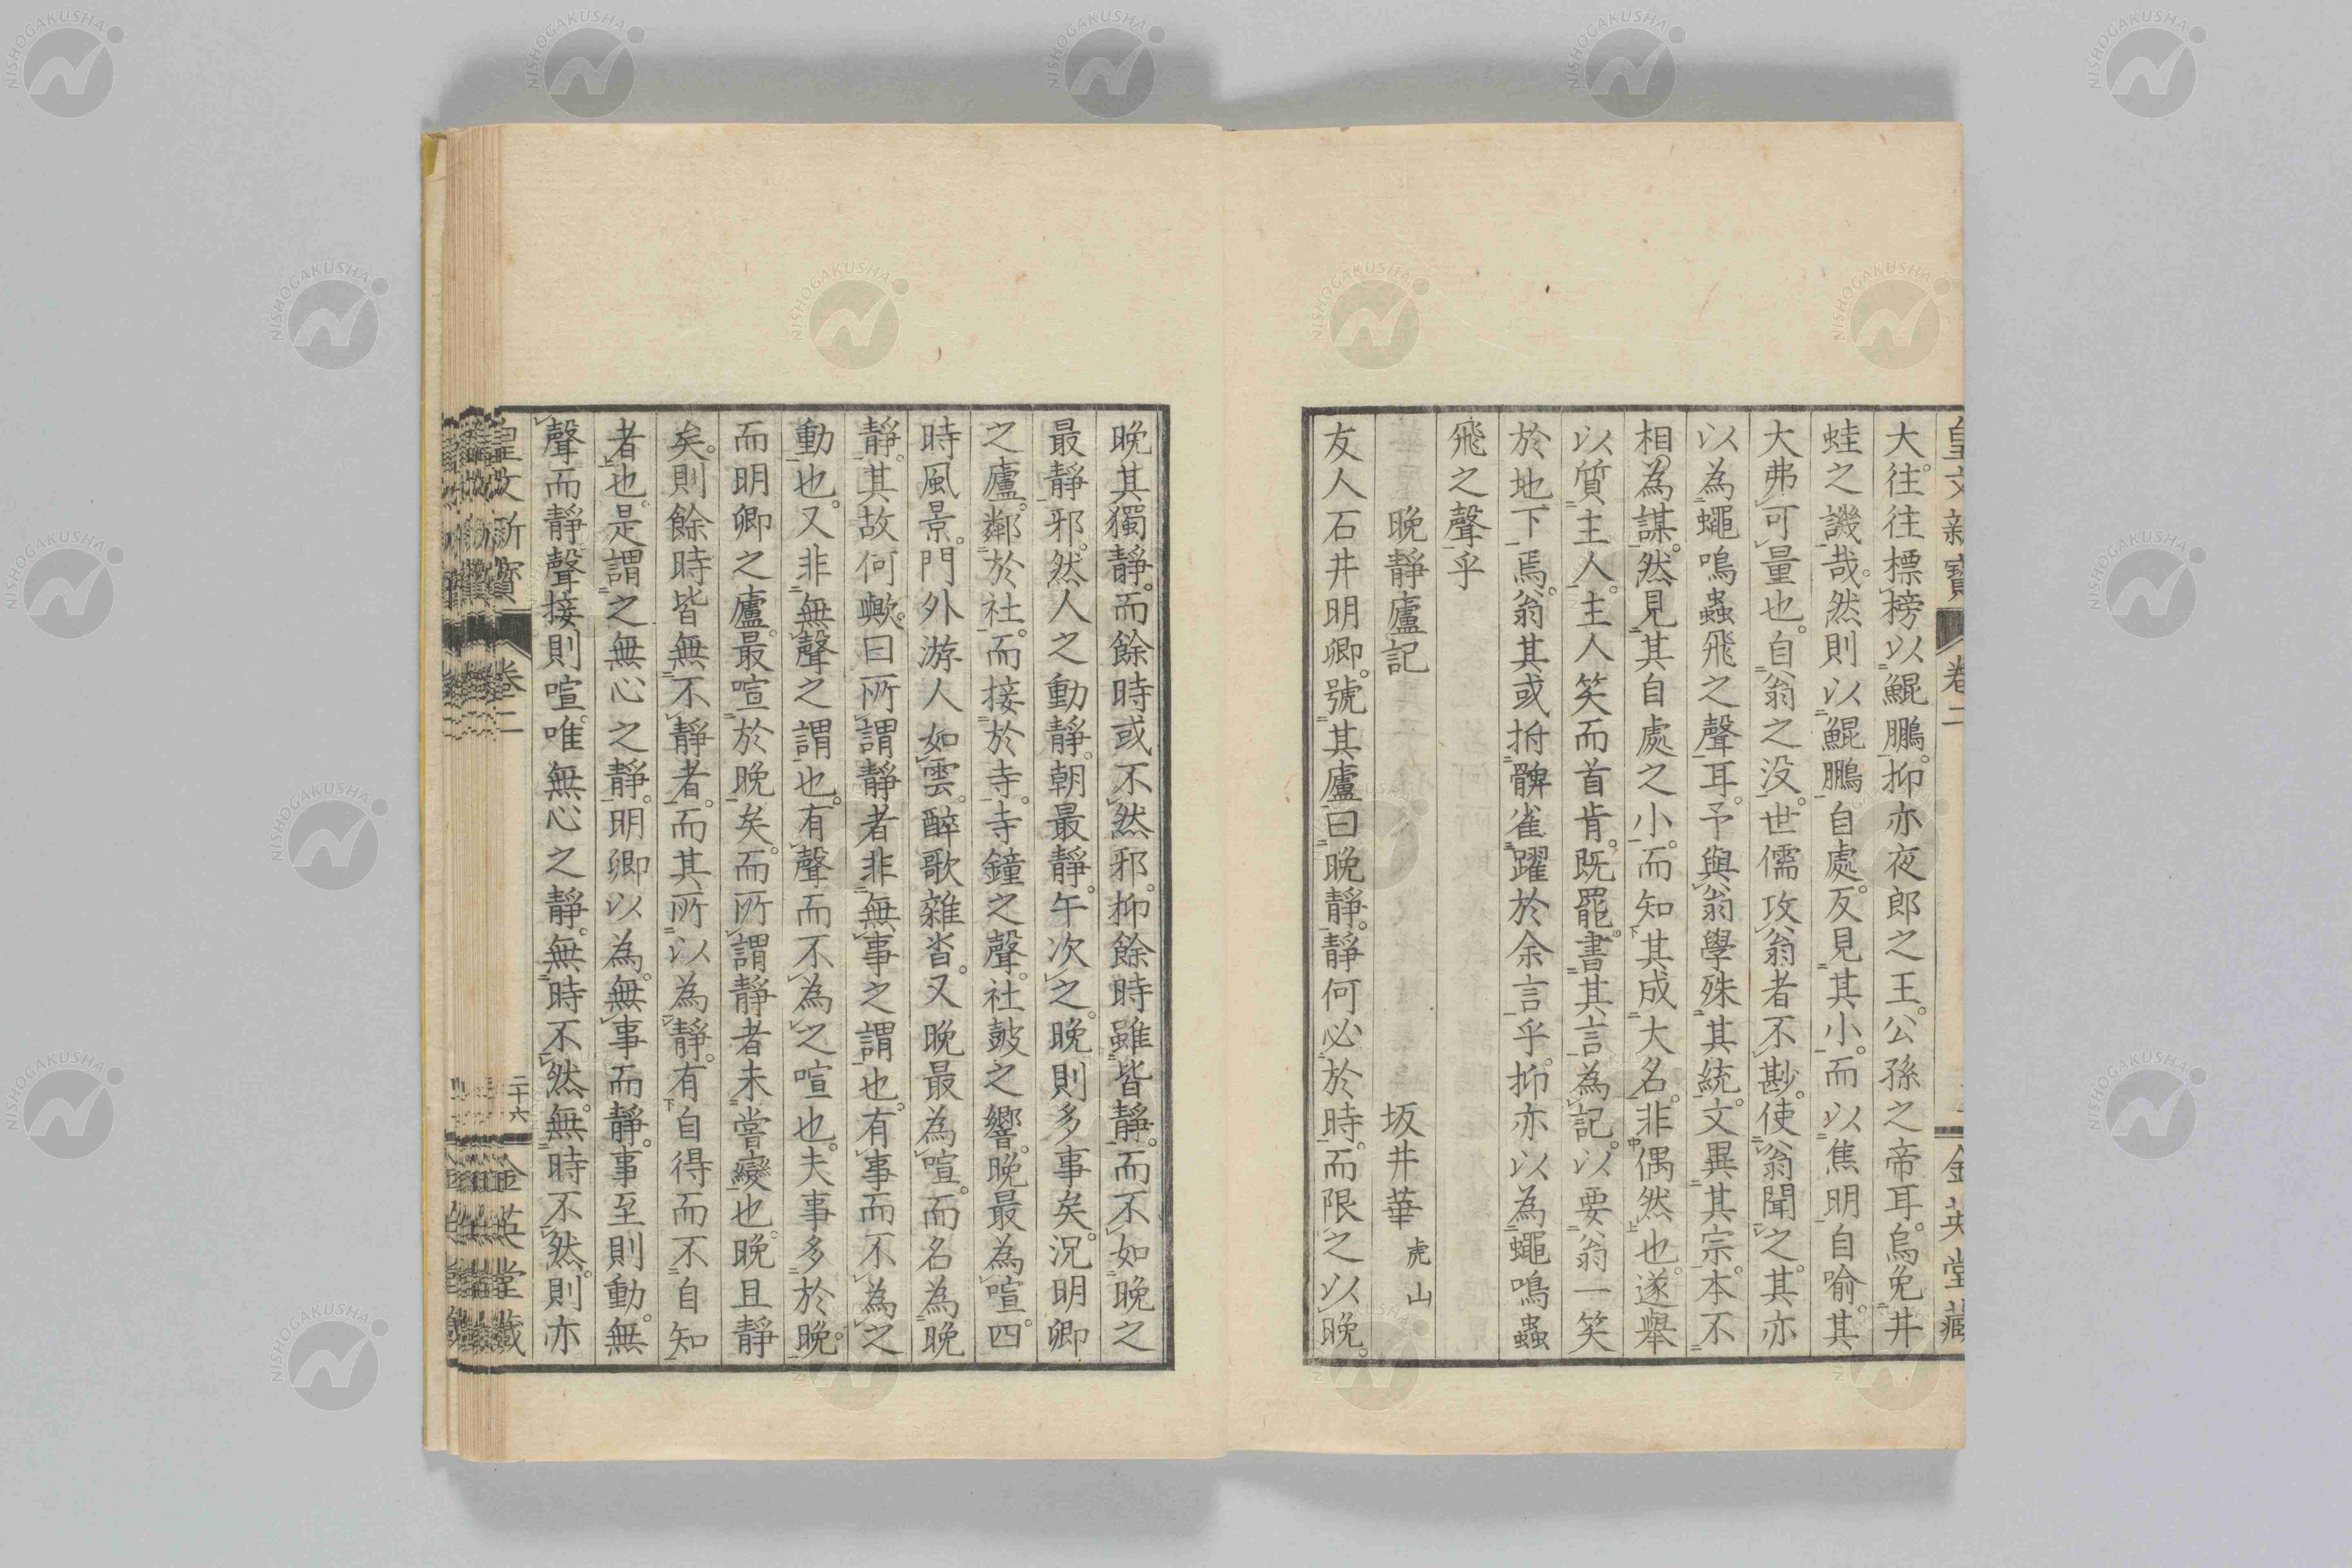 大。往往標榜以鯤鵬。抑亦夜郎之王。公孫之帝耳。烏免井
蛙之譏哉。然則以鯤鵬自處。反見其小。而以焦明自喻。其
大弗可量也。自翁之没。世儒攻翁者不尠。使翁聞之。其亦
以為蠅鳴蟲飛之聲耳。予與翁學殊其統。文異其宗。本不
相為謀。然見其自處之小。而知其成大名。非偶然也。遂舉
以質主人。主人笑而首肯。既罷。書其言為記。以要翁一笑
於地下焉。翁其或拊髀雀躍於余言乎。抑亦以為蠅鳴蟲
飛之聲乎
晩靜廬記 坂井華 虎山
友人石井明卿。號其廬曰晩靜。靜何必於時。而限之以晩。
晩其獨靜。而餘時或不然邪。抑餘時雖皆靜。而不如晩之
最靜邪。然人之動靜。朝最靜。午次之。晩則多事矣。況明卿
之廬。鄰於社。而接於寺。寺鐘之聲。社鼓之響。晩最為喧。四
時風景。門外游人如雲。醉歌雜沓。又晩最為喧。而名為晩
靜。其故何歟。曰所謂靜者。非無事之謂也。有事而不為之
動也。又非無聲之謂也。有聲而不為之喧也。夫事多於晩。
而明卿之廬。最喧於晩矣。而所謂靜者未嘗變也。晩且靜
矣。則餘時皆無不靜者。而其所以為靜。有自得而不自知
者也。是謂之無心之靜。明卿以為。無事而靜。事至則動。無
聲而靜。聲接則喧。唯無心之靜。無時不然。無時不然。則亦
皇文新寶 卷二 金英堂藏
卷二 二十六 金英堂藏